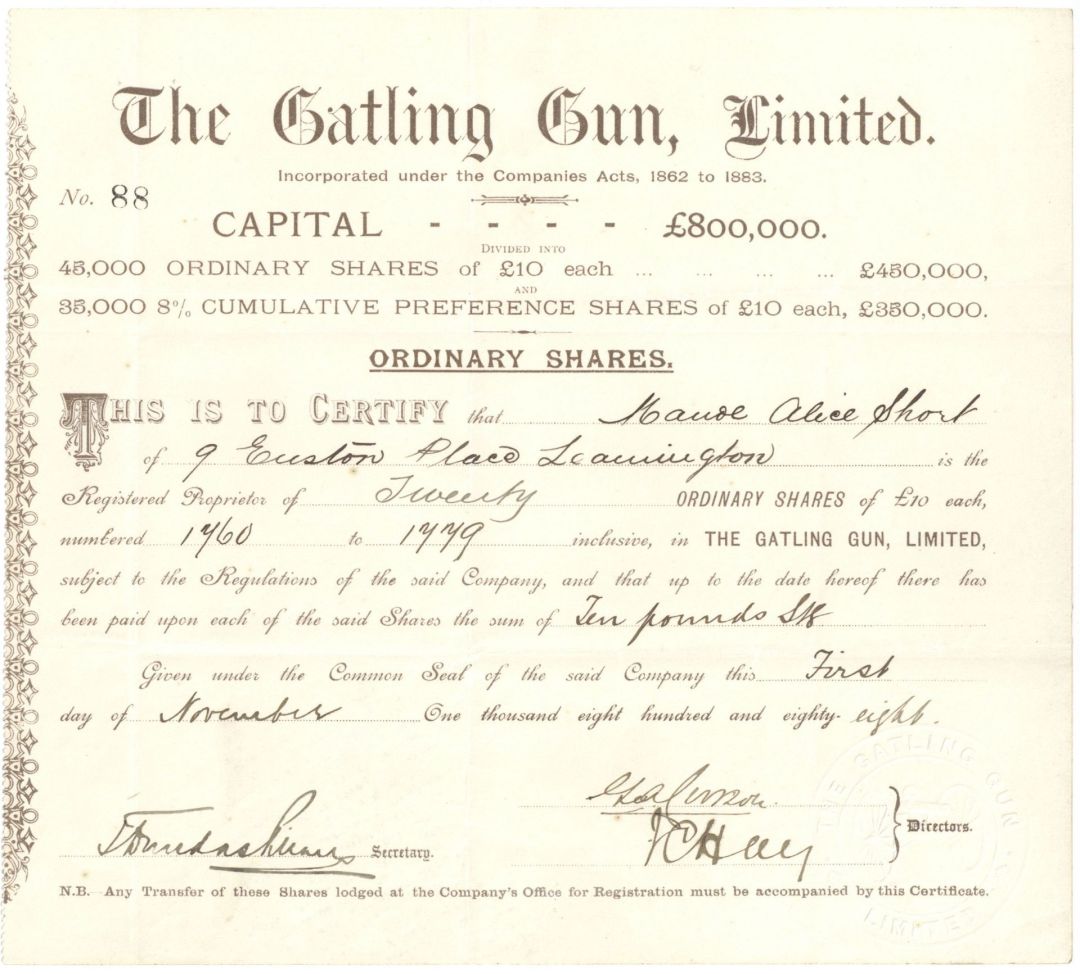 The Gatling Gun, Limited.
Incorporated under the Companies Acts, 1862 to 1883.
No. 88
CAPITAL - - - - £800,000.
DIVIDED INTO
45,000 ORDINARY SHARES of £10 each ... ... ... ... £450,000,
AND
35,000 8% CUMULATIVE PREFERENCE SHARES of £10 each, £350,000.
ORDINARY SHARES.
THIS IS TO CERTIFY that Maude Alice Short
of 9 Euston Place Leamington is the
Registered Proprietor of Twenty ORDINARY SHARES of £10 each,
numbered 1760 to 1779 inclusive, in THE GATLING GUN, LIMITED,
subject to the Regulations of the said Company, and that up to the date hereof there has
been paid upon each of the said Shares the sum of Ten pounds Stg
Given under the Common Seal of the said Company this First
day of November One thousand eight hundred and eighty- eight.
THE GATLING GUN LIMITED
Directors.
Secretary.
N.B. Any Transfer of these Shares lodged at the Company's Office for Registration must be accompanied by this Certificate.